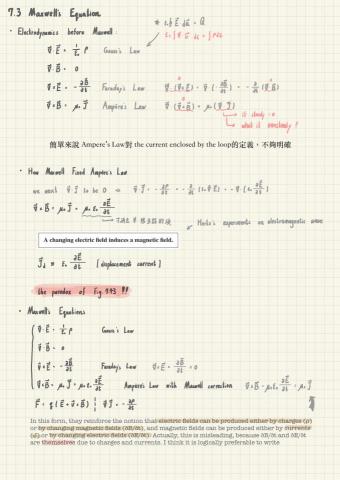 7.3 Maxwell's Equation
* ε₀∮ E⃗ da⃗ = Q
• Electrodynamics before Maxwell :
∇·E⃗ = 1/ε₀ ρ Gauss's Law
∇·B⃗ = 0
∇×E⃗ = - ∂B⃗/∂t Faraday's Law ∇·(∇×E⃗) = ∇·(-∂B⃗/∂t) = - ∂/∂t (∇·B⃗)
∇×B⃗ = μ₀ J⃗ Ampère's Law ∇·(∇×B⃗) = μ₀ (∇·J⃗)
if steady → 0
what if nonsteady ?
簡單來說 Ampere's Law對 the current enclosed by the loop的定義，不夠明確
• How Maxwell Fixed Ampère's Law
we want ∇·J⃗ to be 0 ⇒ ∇·J⃗ = - ∂ρ/∂t = - ∂/∂t (ε₀ ∇·E⃗) = - ∇·(ε₀ ∂E⃗/∂t)
∇×B⃗ = μ₀ J⃗ + μ₀ ε₀ ∂E⃗/∂t
Hertz's experiments on electromagnetic wave
A changing electric field induces a magnetic field.
J⃗d ≡ ε₀ ∂E⃗/∂t [displacement current]
the paradox of Fig 7.43 !!!
• Maxwell's Equations
∇·E⃗ = 1/ε₀ ρ Gauss's Law
∇·B⃗ = 0
∇×E⃗ = - ∂B⃗/∂t Faraday's Law ∇×E⃗ + ∂B⃗/∂t = 0
∇×B⃗ = μ₀ J⃗ + μ₀ε₀ ∂E⃗/∂t Ampère's Law with Maxwell correction ∇×B⃗ - μ₀ε₀ ∂E⃗/∂t = μ₀ J⃗
F⃗ = q (E⃗ + v⃗×B⃗) ∇·J⃗ = - ∂ρ/∂t
In this form, they reinforce the notion that electric fields can be produced either by charges (ρ)
or by changing magnetic fields (∂B/∂t), and magnetic fields can be produced either by currents
(J) or by changing electric fields (∂E/∂t). Actually, this is misleading, because ∂B/∂t and ∂E/∂t
are themselves due to charges and currents. I think it is logically preferable to write